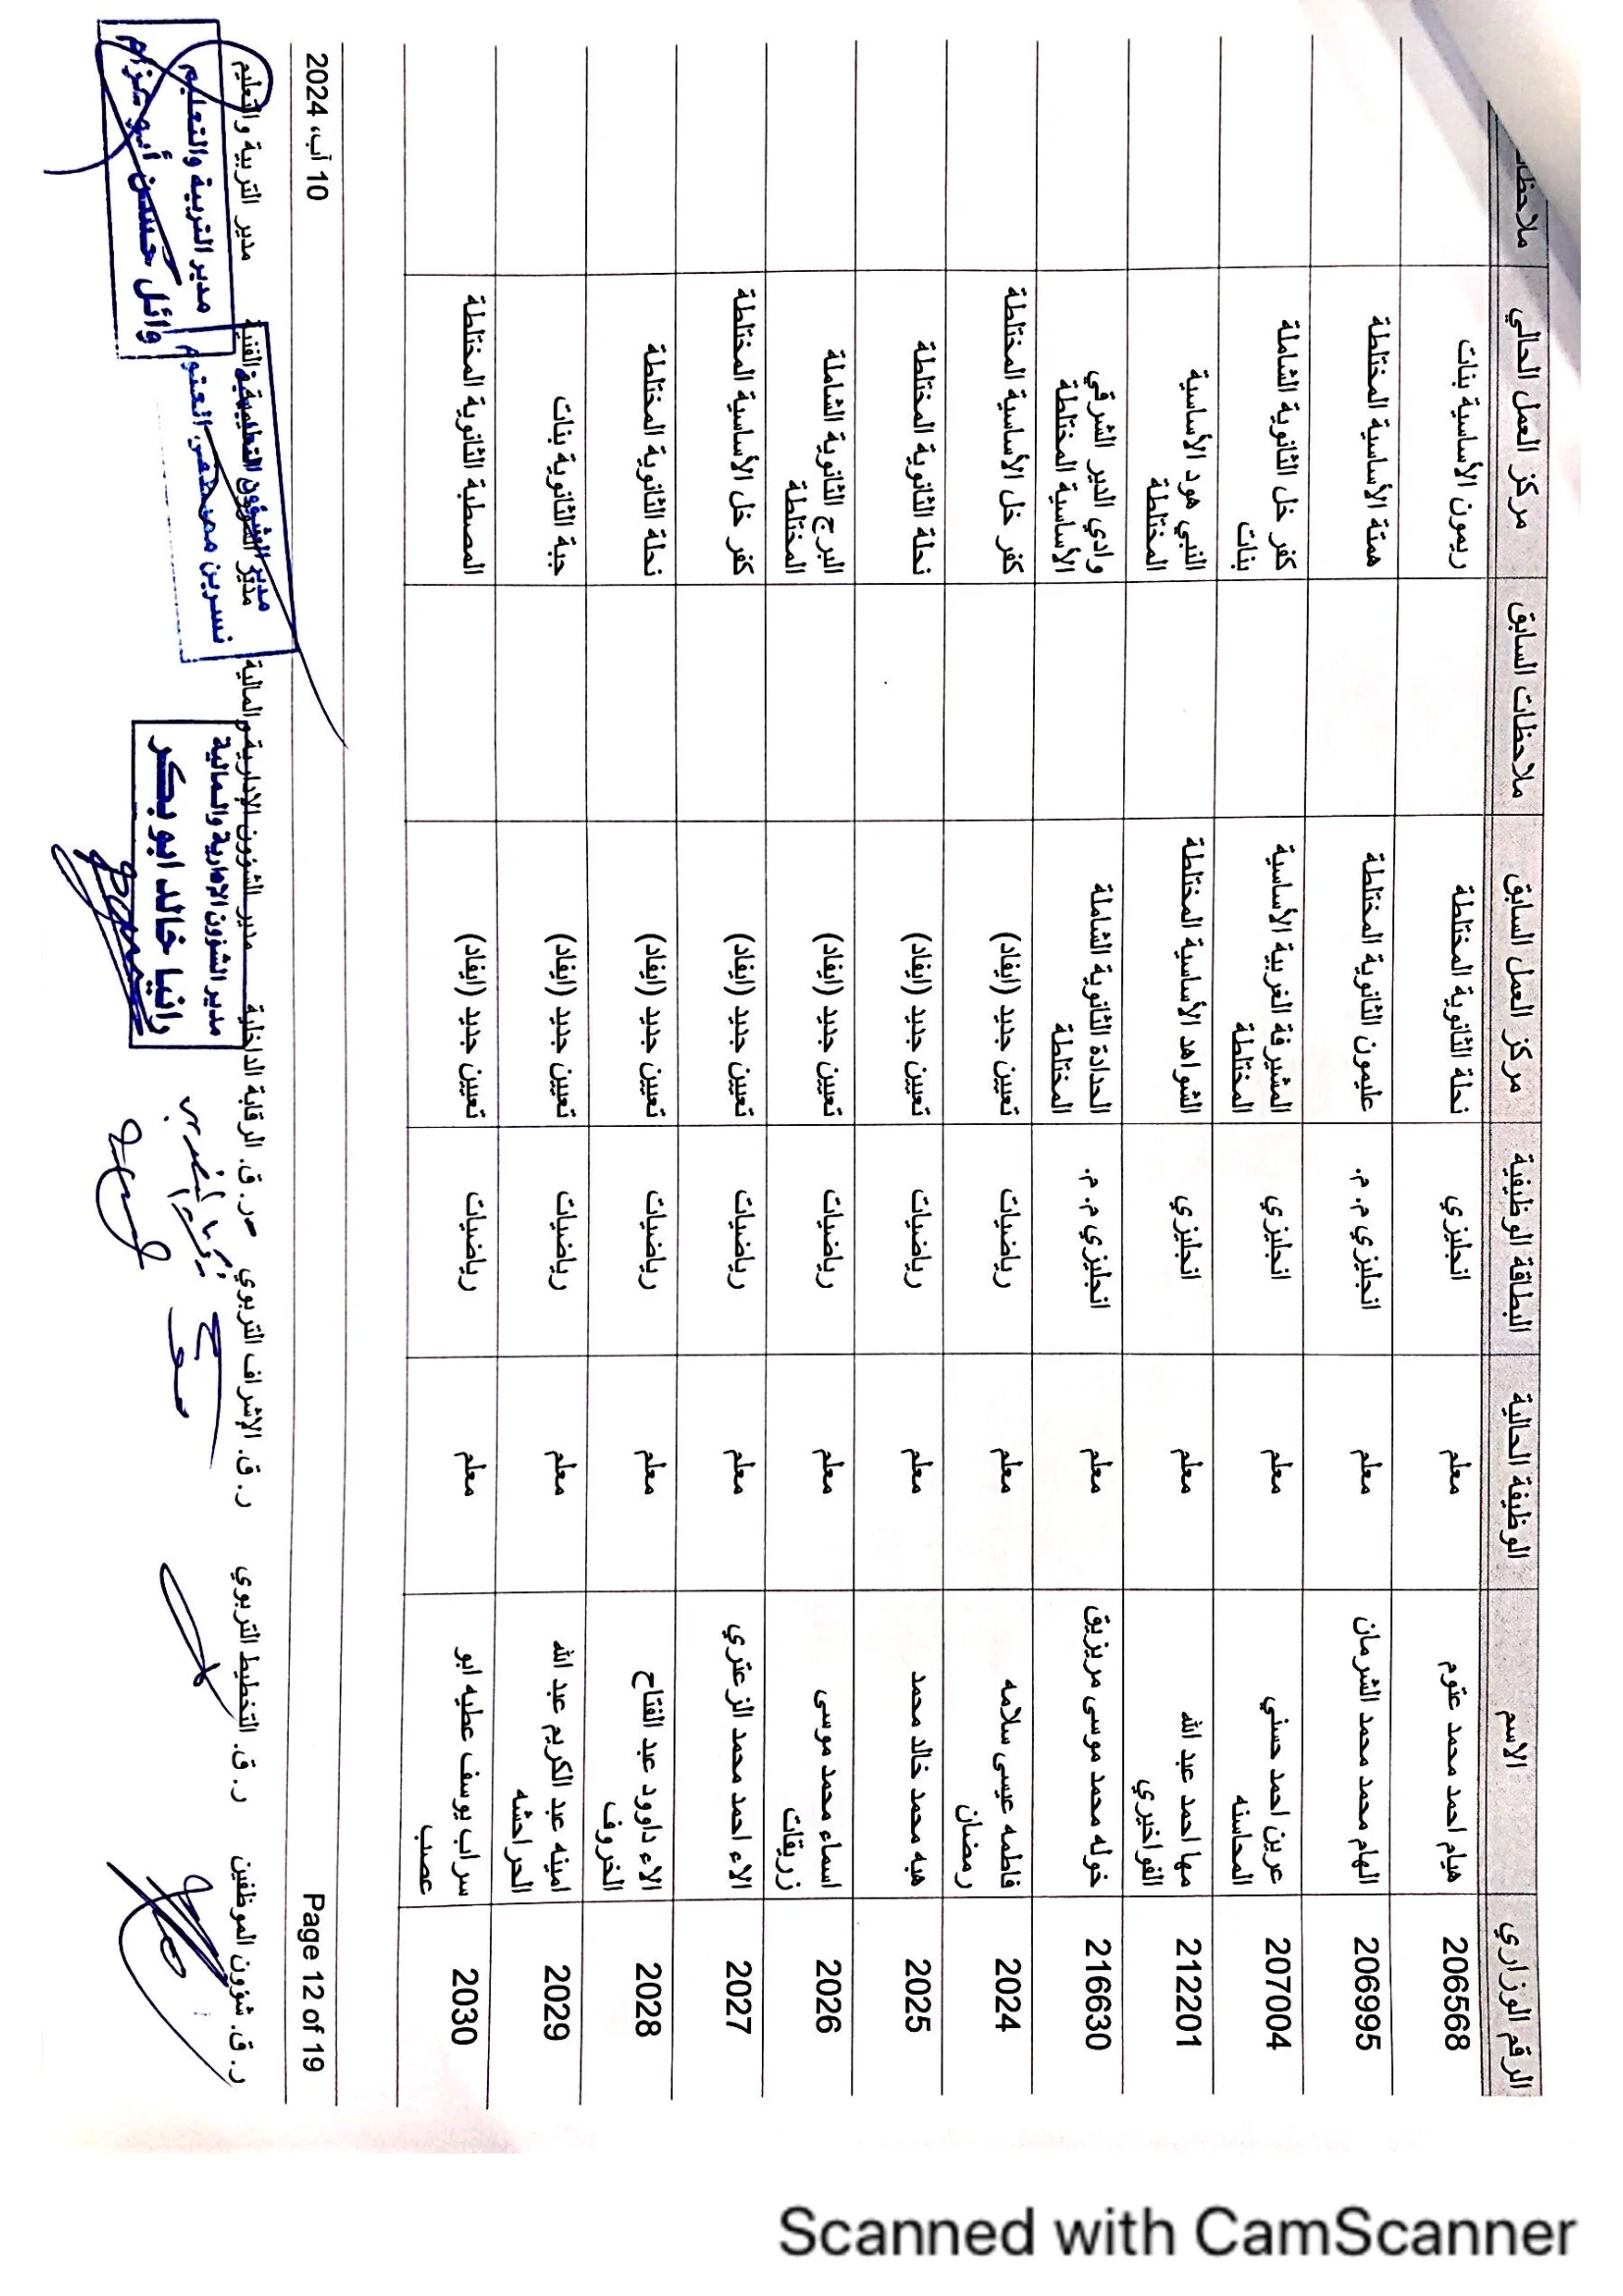 الرقم الوزاري الاسم الوظيفة الحالية البطاقة الوظيفية مركز العمل السابق ملاحظات السابق مركز العمل الحالي
206568 هيام احمد محمد عتوم معلم انجليزي نحلة الثانوية المختلطة ريمون الأساسية بنات
206995 الهام محمد محمد الشرمان معلم انجليزي م. م. عليمون الثانوية المختلطة همتة الأساسية المختلطة
207004 عرين احمد حسني معلم انجليزي المشيرفة الغربية الأساسية كفر خل الثانوية الشاملة
المحاسنه المختلطة بنات
212201 مها احمد عبد الله معلم انجليزي الشواهد الأساسية المختلطة النبي هود الأساسية
الفواخيري المختلطة
216630 خوله محمد موسى مريزيق معلم انجليزي م. م. الحدادة الثانوية الشاملة وادي الدير الشرقي
المختلطة الأساسية المختلطة
2024 فاطمه عيسى سلامه معلم رياضيات تعيين جديد (ايفاد) كفر خل الأساسية المختلطة
رمضان
2025 هبه محمد خالد محمد معلم رياضيات تعيين جديد (ايفاد) نحلة الثانوية المختلطة
2026 اسماء محمد موسى معلم رياضيات تعيين جديد (ايفاد) البرج الثانوية الشاملة
زريقات المختلطة
2027 الاء احمد محمد الزعتري معلم رياضيات تعيين جديد (ايفاد) كفر خل الأساسية المختلطة
2028 الاء داوود عبد الفتاح معلم رياضيات تعيين جديد (ايفاد) نحلة الثانوية المختلطة
الخروف
2029 امينه عبد الكريم عبد الله معلم رياضيات تعيين جديد (ايفاد) حبة الثانوية بنات
الحراحشه
2030 سراب يوسف عطيه ابو معلم رياضيات تعيين جديد (ايفاد) المصطبة الثانوية المختلطة
عصب
Page 12 of 19 10 آب، 2024
ر. ق. شؤون الموظفين ر. ق. التخطيط التربوي ر. ق. الإشراف التربوي ر. ق. الرقابة الداخلية مدير الشؤون الإدارية والمالية مدير الشؤون التعليمية والفنية مدير التربية والتعليم
مدير الشؤون الادارية والمالية
رانيا خالد ابو بكر
مدير الشؤون التعليمية والفنية
نسرين مصطفى العتوم
مدير التربية والتعليم
وائل حسن أبو عزام
Scanned with CamScanner